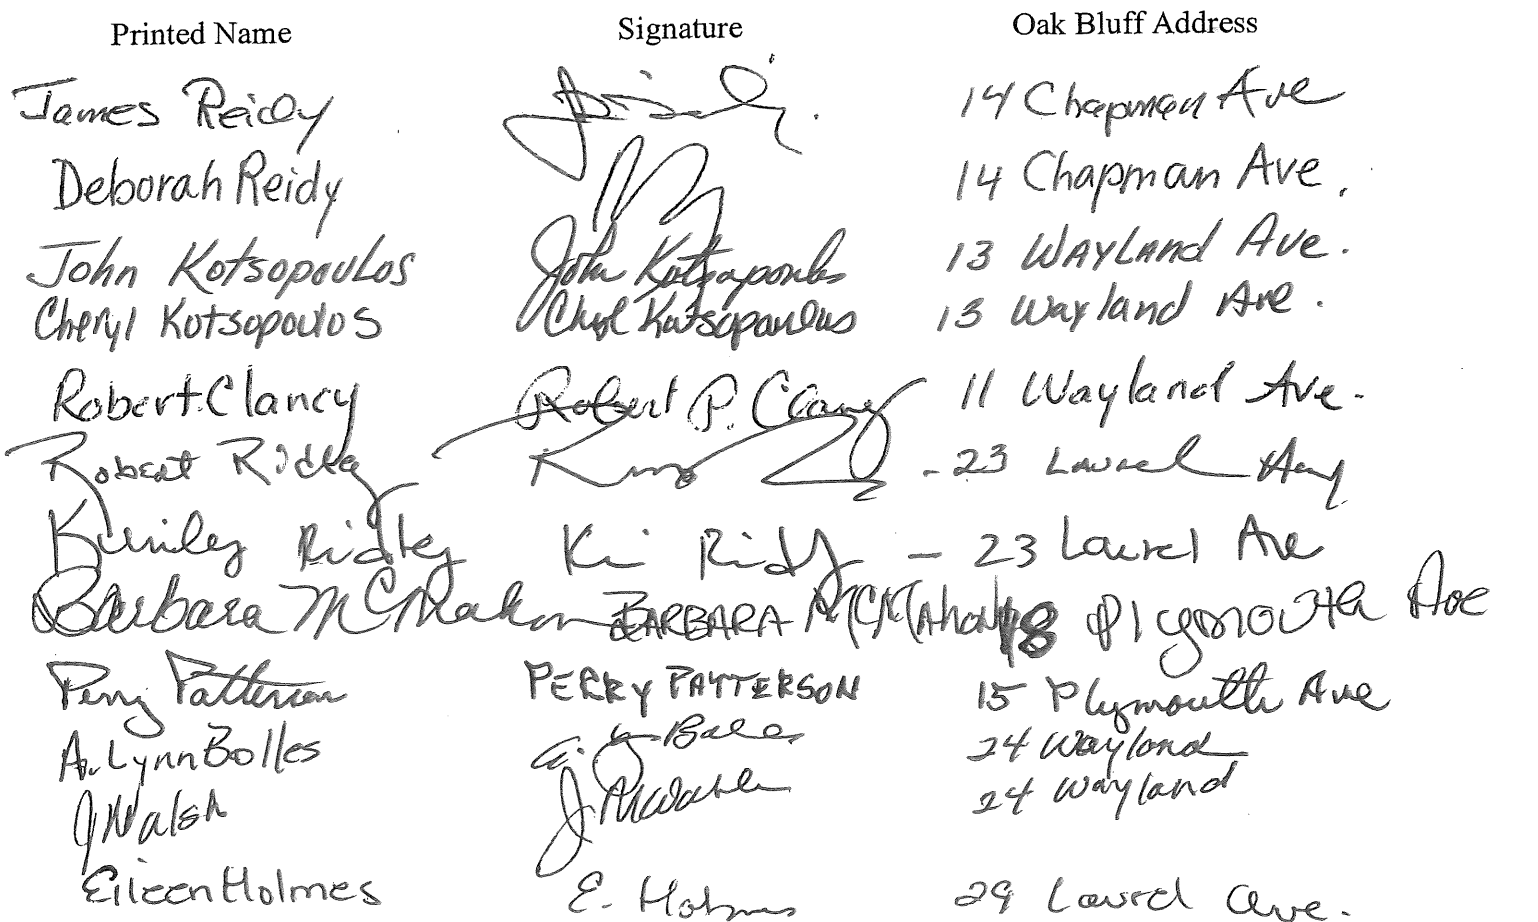 Printed Name Signature Oak Bluff Address
James Reidy 14 Chapman Ave
Deborah Reidy 14 Chapman Ave.
John Kotsopoulos John Kotsopoulos 13 Wayland Ave.
Cheryl Kotsopoulos Cheryl Kotsopoulos 13 Wayland Ave.
Robert Clancy Robert P. Clancy 11 Wayland Ave.
Robert Ridley - 23 Laurel
Ridley Ridley - 23 Laurel Ave
Barbara McMahon BARBARA McMahon 18 Plymouth Ave
Perry Patterson PERRY PATTERSON 15 Plymouth Ave
A. Lynn Bolles 24 Wayland
J Walsh 24 Wayland
Eileen Holmes E. Holmes 29 Laurel Ave.